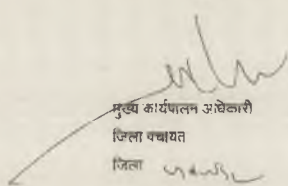 मुख्य कार्यपालन अधिकारी
जिला पंचायत
जिला